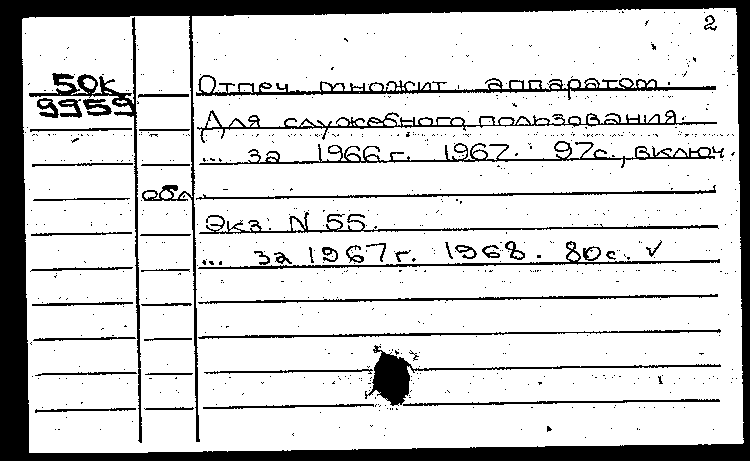 2
50К Отпеч. множит. аппаратом.
9959 Для служебного пользования.
... за 1966г. 1967. 97с., включ.
обл.
Экз. N 55.
... за 1967г. 1968. 80с. ✓